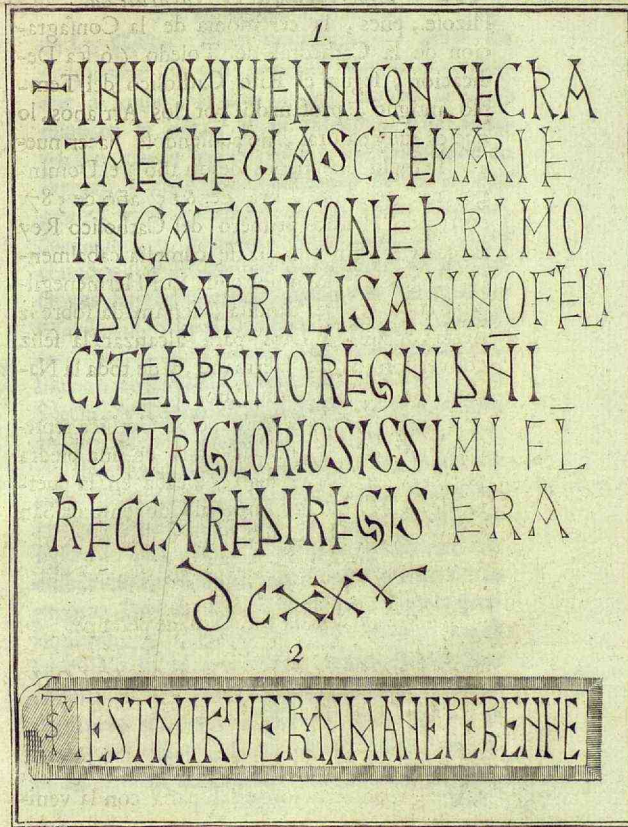 1.
+INNOMINEDN̅ICONSECRA
TAECLESIASCTEMARIE
INCATOLICODIEPRIMO
IDVSAPRILISANNO̅FELI
CITERPRIMOREGNIDN̅I
NOSTRIGLORIOSISSIMI FL̅
RECCAREDIREGIS ERA
DCXXV
2
ESTMIKUERVMMANEPERENNE